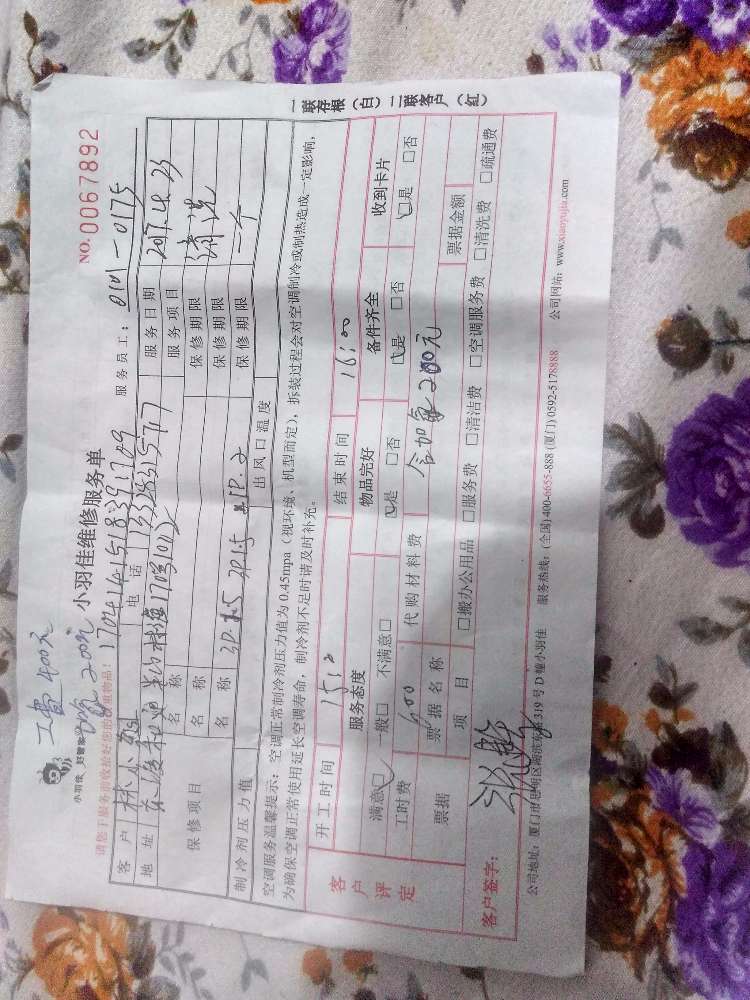 工费400元
加氟200元
小羽佳 好管家
小羽佳维修服务单
NO.0067892
170414-1518391709
服务员工：0101-0175
客户 林小姐 电话 13328315717 服务日期 2017.4.23
地址 170号1012 服务项目 清洗
保修项目 名称 保修期限
名称 保修期限
名称 保修期限
制冷剂压力值 出风口温度
空调服务温馨提示：空调正常制冷剂压力值为0.45mpa（视环境、机型而定），拆装过程会对空调制冷或制热造成一定影响，
为确保空调正常使用延长空调寿命，制冷剂不足时请及时补充。
客户评定
开工时间 结束时间 16:00
服务态度 物品完好 备件齐全 收到卡片
满意☑ 一般□ 不满意□ ☑是 □否 ☑是 □否 ☑是 □否
工时费 600 代购材料费 含加氟200元
票据 票据名称 票据金额
项目 □搬办公用品 □服务费 □清洁费 □空调服务费 □清洗费 □疏通费
客户签字：
公司地址：厦门市思明区湖滨东路319号D幢小羽佳 服务热线：(全国)400-6655-888 (厦门)0592-5178888 公司网站：www.xiaoyujia.com
一联存根（白）二联客户（红）